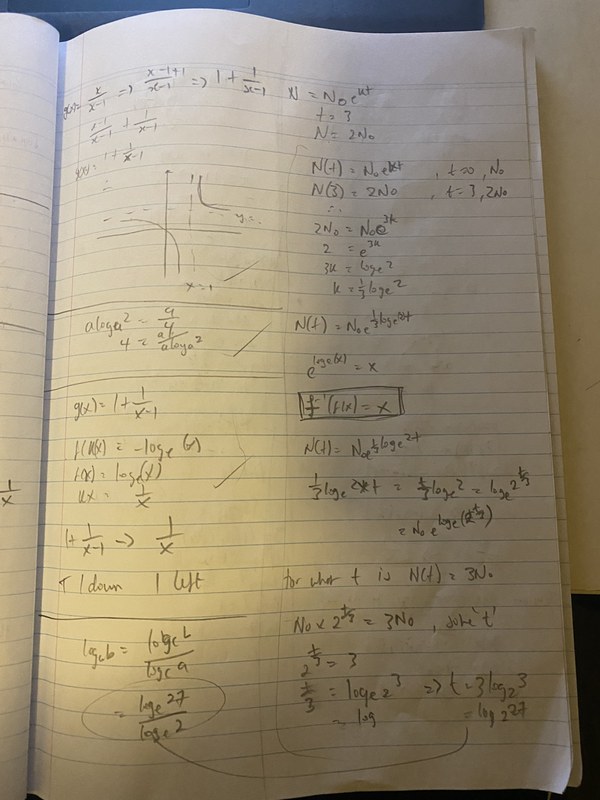 g(x) = x/(x-1) => (x-1+1)/(x-1) => 1 + 1/(x-1)
(x-1)/(x-1) + 1/(x-1)
g(x) = 1 + 1/(x-1)
x=1
g(x) = 1 + 1/(x-1)
f(u(x)) = -log_e(x)
f(x) = log_e(x)
ux = 1/x
1 + 1/(x-1) -> 1/x
1 down 1 left
= log_e 27 / log_e 2
N = N₀e^kt
t = 3
N = 2N₀
N(t) = N₀e^kt , t=0, N₀
N(3) = 2N₀ , t=3, 2N₀
∴
2N₀ = N₀e^3k
2 = e^3k
3k = log_e 2
k = 1/3 log_e 2
N(t) = N₀e^(1/3 log_e 2t)
e^(log_e(x)) = x
f⁻¹(f(x)) = x
N(t) = N₀e^(1/3 log_e 2t)
1/3 log_e 2×t = t/3 log_e 2 = log_e 2^(t/3)
= N₀e^(log_e(2^(t/3)))
for what t is N(t) = 3N₀
N₀ × 2^(t/3) = 3N₀ , solve 't'
2^(t/3) = 3
t/3 = log_e 2^3 => t = 3log₂3
= log = log 2^27